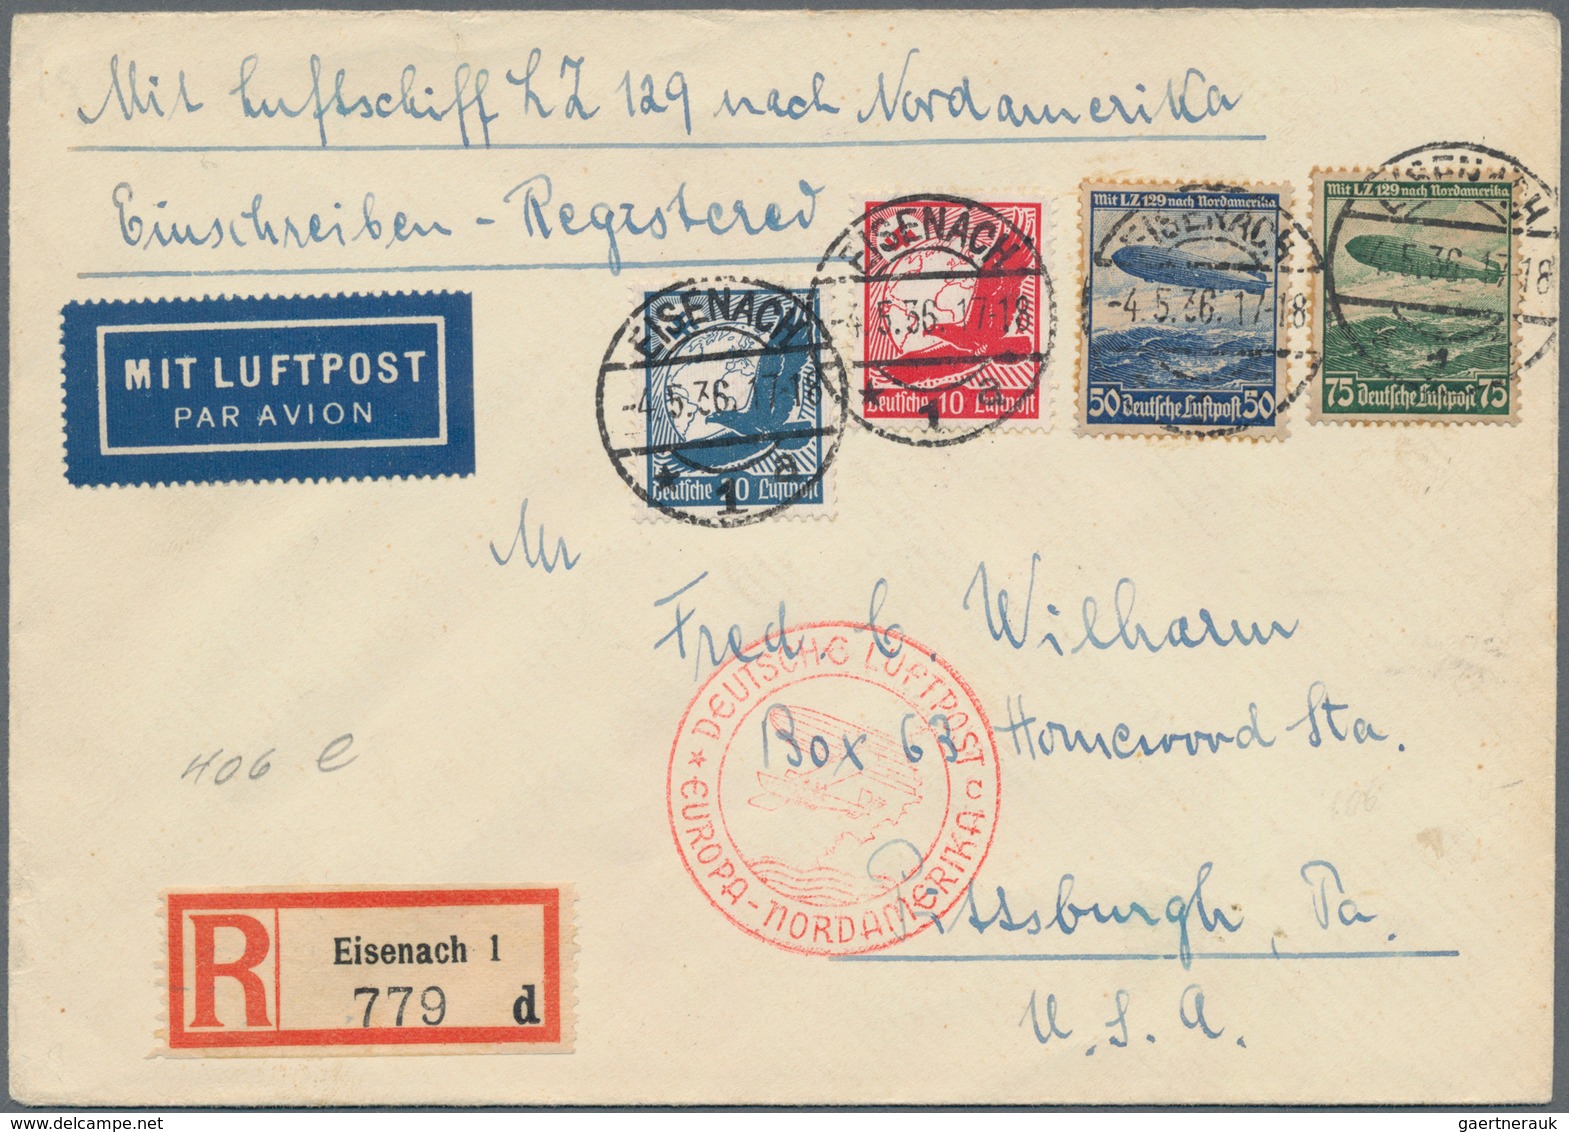 Mit Luftschiff LZ 129 nach Nordamerika
Einschreiben - Registered
MIT LUFTPOST
PAR AVION
EISENACH
-4.5.36.17-18
* 1 a
Deutsche 20 Luftpost
EISENACH
-4.5.36.17-18
* 1 a
Deutsche 10 Luftpost
Mit LZ 129 nach Nordamerika
EISENACH
-4.5.36.17-18
50 Deutsche Luftpost 50
Mit LZ 129 nach Nordamerika
EISENACH
-4.5.36.17-18
1
75 Deutsche Luftpost 75
Mr
Fred. C. Wilharm
Box 63 Homewood Sta.
Pittsburgh, Pa.
U.S.A.
* DEUTSCHE LUFTPOST c
EUROPA-NORDAMERIKA
406 e
R
Eisenach 1
779 d
gaertnerauk